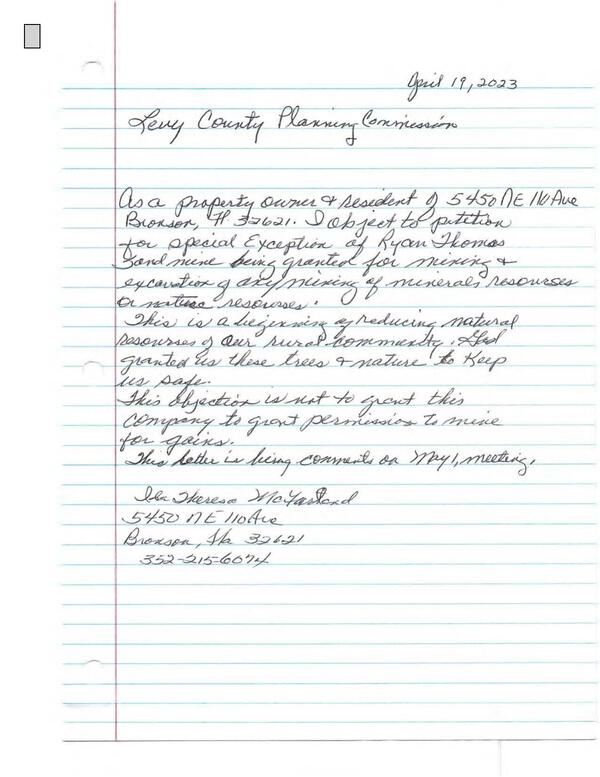 April 19, 2023
Levy County Planning Commission
As a property owner & resident of 5450 NE 110 Ave
Bronson, Fl. 32621. I object to petition
for special Exception of Ryan Thomas
Sand mine being granted for mining &
excavation of any mining of minerals resourses
or nature resourses.
This is a beginning of reducing natural
resourses of our rural community. God
granted us these trees & nature to keep
us safe.
This objection is not to grant this
company to grant permission to mine
for gains.
This letter is being comments on May 1, meeting.
Theresa McFarland
5450 NE 110 Ave
Bronson, Fla 32621
352-215-6074